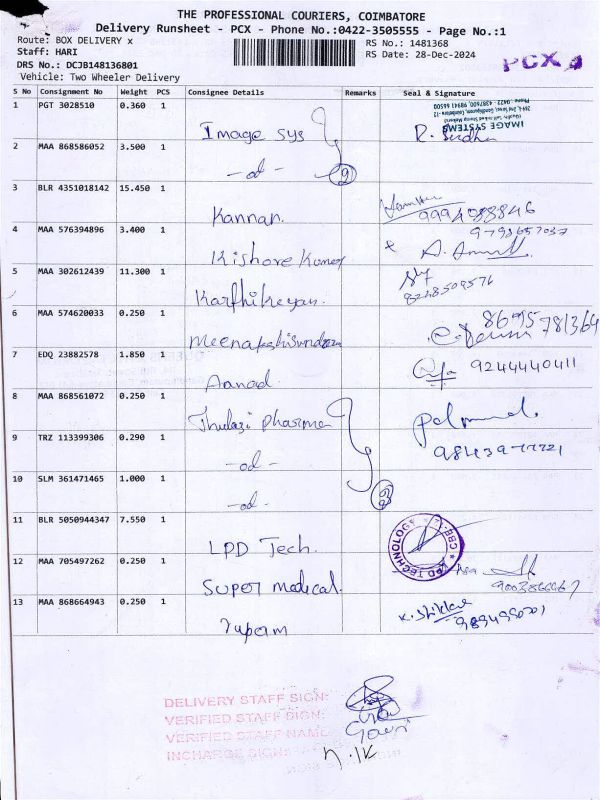 THE PROFESSIONAL COURIERS, COIMBATORE
Delivery Runsheet - PCX - Phone No.:0422-3505555 - Page No.:1
Route: BOX DELIVERY x
RS No.: 1481368
Staff: HARI
RS Date: 28-Dec-2024
PCX
DRS No.: DCJB148136801
Vehicle: Two Wheeler Delivery
S No Consignment No Weight PCS Consignee Details Remarks Seal & Signature
1 PGT 3028510 0.360 1 Image Sys
IMAGE SYSTEMS
2 MAA 868586052 3.500 1 -od-
3 BLR 4351018142 15.450 1 Kannan. 9994083846
4 MAA 576394896 3.400 1 Kishore Kumar
5 MAA 302612439 11.300 1 Karthikeyan.
6 MAA 574620033 0.250 1 8695781364
7 EDQ 23882578 1.850 1 Aanad 9244440411
8 MAA 868561072 0.250 1 Thulazi pharma
9 TRZ 113399306 0.290 1 -od-
10 SLM 361471465 1.000 1 -od-
11 BLR 5050944347 7.550 1 LPD Tech.
LPD TECHNOLOGY * CBE
12 MAA 705497262 0.250 1 Super medical.
13 MAA 868664943 0.250 1
DELIVERY STAFF SIGN:
VERIFIED STAFF SIGN:
VERIFIED STAFF NAME: Gowri
INCHARGE SIGN: